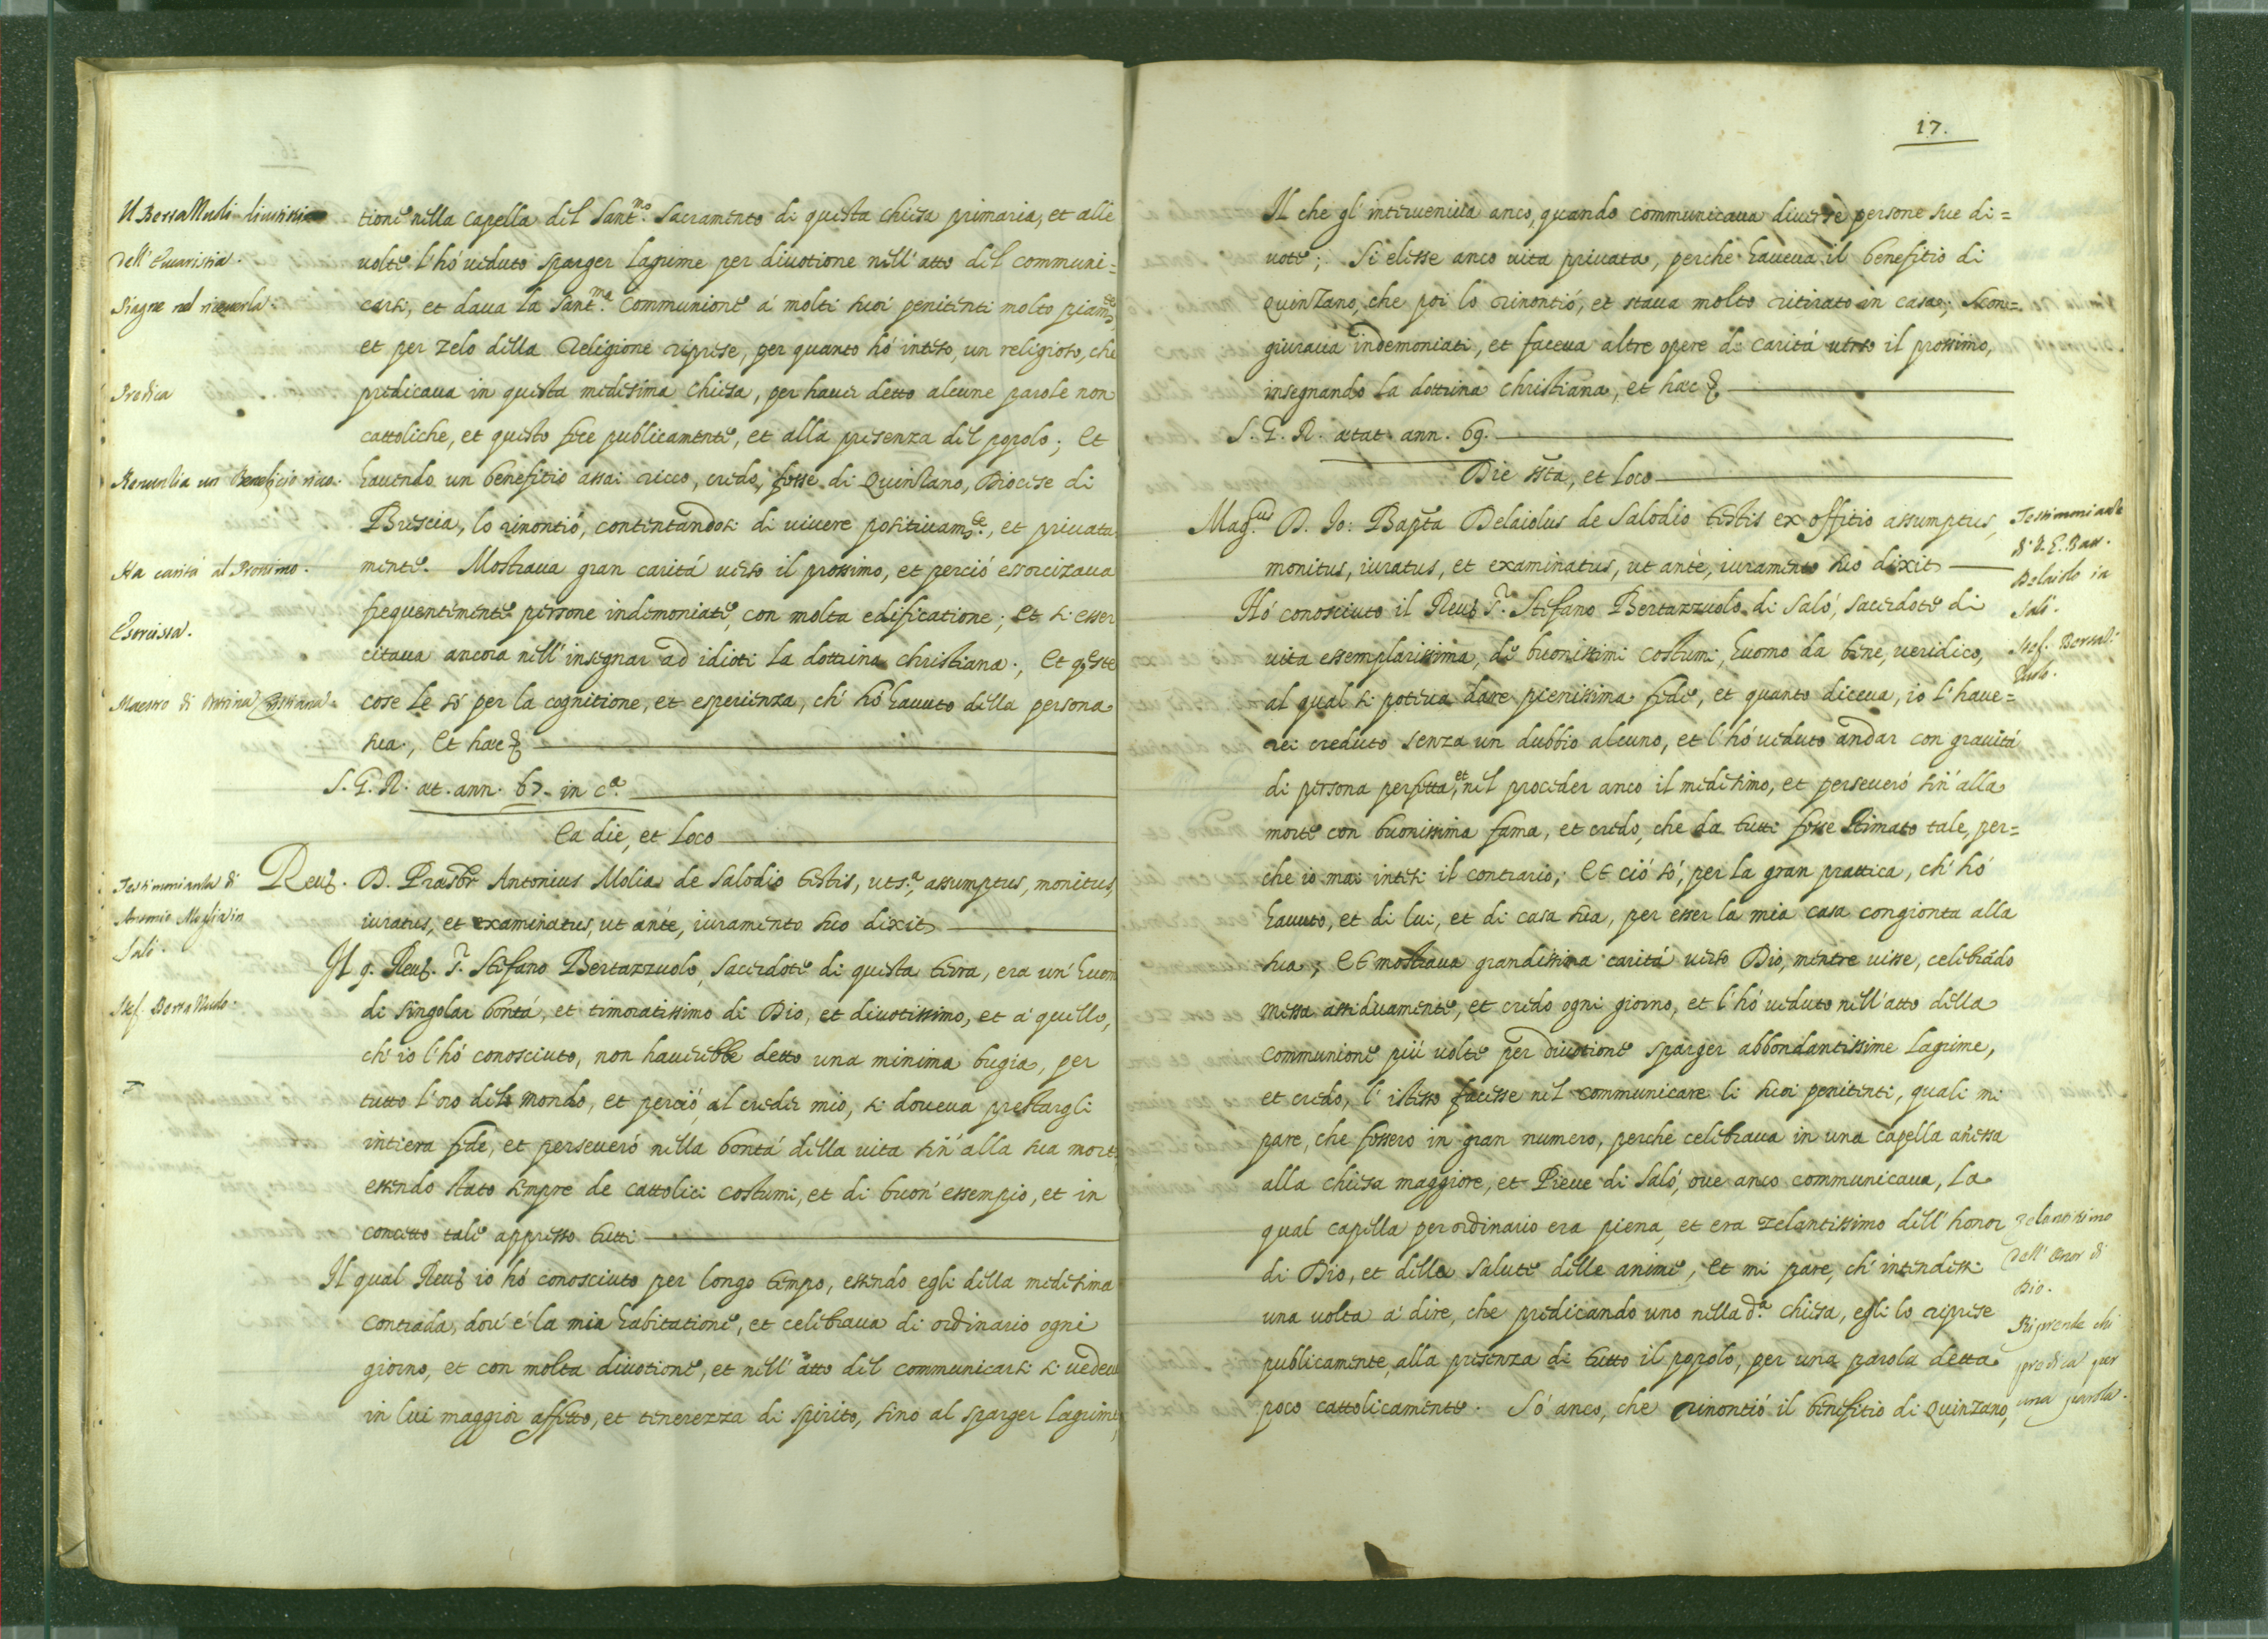 tione nella Capella del Sant.mo Sacramento di questa Chiesa primaria, et alle
volte l'hó veduto sparger lagrime per divotione nell'atto del communi=
carsi, et dava la Sant.ma Communione á molti suoi penitenti molto piam.te,
et per zelo della Religione riprese, per quanto hó inteso, un religioso, che
predicava in questa medesima Chiesa, per haver detto alcune parole non
cattoliche, et questo fece publicamente, et alla presenza del popolo; Et
havendo un benefitio assai ricco, credo, fosse di Quinzano, Diocese di
Brescia, lo rinontió, contentandosi di vivere positivam.te, et privata
mente. Mostrava gran caritá verso il prossimo, et perció essorcizava
frequentemente persone indemoniate, con molta edificatione; Et si esser
citava ancora nell'insegnar ad idioti la dottrina christiana; Et q.este
cose le só per la cognitione, et esperienza, ch'hó havuto della persona
sua, Et hæc &
S. G. R. æt. ann. 67. in c.a
Ea die, et Loco
Rev. D. Præsbr Antonius Molia de Salodio testis, uts.a, assumptus, monitus,
iuratus, et examinatus, ut ante, iuramento suo dixit
Il q. Rev. S.r Stefano Bertazzuolo, sacerdote di questa terra, era un'huom
di singolar bontá, et timoratissimo di Dio, et divotissimo, et á quello,
ch'io l'hó conosciuto, non haverebbe detto una minima bugia, per
tutto l'oro del mondo, et perció, al creder mio, si doveva prestargli
intiera fede, et perseveró nella bontá della vita sin'alla sua morte,
essendo stato sempre de cattolici costumi, et di buon'essempio, et in
concetto tale appresso tutti
Il qual Rev. io hó conosciuto per longo tempo, essendo egli della medesima
Contrada, dov'é la mia habitatione, et celebrava di ordinario ogni
giorno, et con molta divotione, et nell'atto del communicarsi si vedeva
in lui maggior affetto, et tenerezza di spirito, sino al sparger lagrime,
Il BersaNudi divotissimo
Dell'Eucaristia.
Piagne nel riceverla.
Predica
Renunlia un Benefizio ricco.
Ha carità al Prossimo.
Esorcissa.
Maestro di Dottrina Cristiana.
Testimonianla di
Antonio Moglia in
Salò.
Stef. Bersa Nudo.
17.
Il che gl'interveniva anco, quando communicava diverse persone sue di=
vote; Si elesse anco vita privata, perche haveva il benefitio di
Quinzano, che poi lo rinontió, et stava molto ritirato in casa; Scon=
giurava indemoniati, et faceva altre opere di caritá verso il prossimo,
insegnando la dottrina christiana, et hæc &
S. G. R. ætat. ann. 69.
Die ssta, et Loco
Mag.cus D. Jo: Bapta Delaiolus de Salodio testis ex offitio assumptus,
monitus, iuratus, et examinatus, ut ante, iuramento suo dixit
Hó conosciuto il Rev. S.r Stefano Bertazzuolo di Saló, sacerdote di
vita essemplarissima, di buonissimi costumi, huomo da bene, veridico,
al qual si poteva dare pienissima fede, et quanto diceva, io l'have=
rei creduto senza un dubbio alcuno, et l'hó veduto andar con gravitá
di persona perfetta, et nel proceder anco il medesimo, et perseveró sin'alla
morte con buonissima fama, et credo, che da tutti fosse stimato tale, per=
che io mai intesi il contrario; Et ció só, per la gran prattica, ch'hó
havuto, et di lui, et di casa sua, per esser la mia casa congionta alla
sua; Et mostrava grandissima caritá verso Dio, mentre visse, celebrãdo
messa assiduamente, et credo ogni giorno, et l'hó veduto nell'atto della
Communione piú volte per divotione sparger abbondantissime lagrime,
et credo, l'istesso facesse nel communicare li suoi penitenti, quali mi
pare, che fossero in gran numero, perche celebrava in una capella añessa
alla chiesa maggiore, et Pieve di Saló, ove anco communicava, la
qual capella per ordinario era piena, et era zelantissimo dell'honor
di Dio, et della salute delle anime, Et mi pare, ch'intendessi
una volta á dire, che predicando uno nella d.a chiesa, egli lo riprese
publicamente, alla presenza di tutto il popolo, per una parola detta
poco cattolicamente. Só anco, che rinontió il benefitio di Quinzano,
Testimonianle
Delaiolo in
Salò.
Zelantissimo
Dell'Onor di
Dio.
Riprende chi
predica per
una parola.